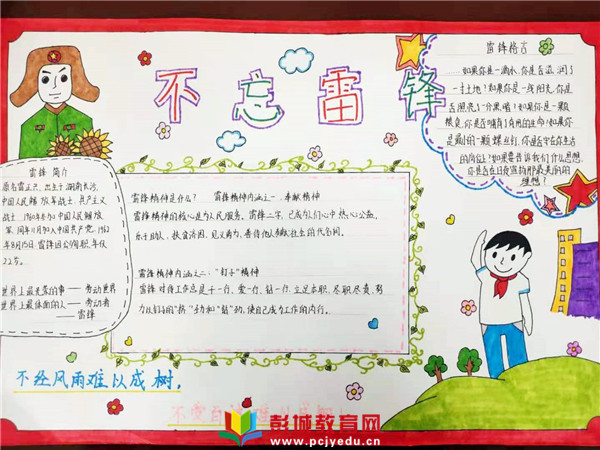 不忘雷锋
雷锋格言
如果你是一滴水,你是否滋润了
一寸土地?如果你是一线阳光,你是
否照亮了一分黑暗?如果你是一颗
粮食,你是否哺育了有用的生命?如果你
是最小的一颗螺丝钉,你是否守在你生活
的岗位上?如果要告诉我们什么思想
你是否在日夜宣扬那最美丽的
理想?
雷锋 简介
原名雷正兴,出生于湖南长沙,
中国人民解放军战士,共产主义
战士,1960年参加中国人民解放
军,同年11月加入中国共产党。1962
年8月15日,雷锋因公殉职,年仅
22岁。
世界上最光荣的事——劳动世界
世界上最体面的人——劳动者
——雷锋
雷锋精神是什么? 雷锋精神内涵之一:奉献精神
雷锋精神的核心是为人民服务,雷锋二字,已成为人们心中热心公益,
乐于助人,扶贫济困,见义勇为,善待他人,奉献社会的代名词。
雷锋精神内涵之二:"钉子"精神
雷锋对待工作总是干一行、爱一行、钻一行,立足本职、尽职尽责,努
力以钉子的"挤"劲和"钻"劲,使自己成为工作的内行。
不经风雨难以成树,
不受百
彭城教育网
www.pcjyedu.cn